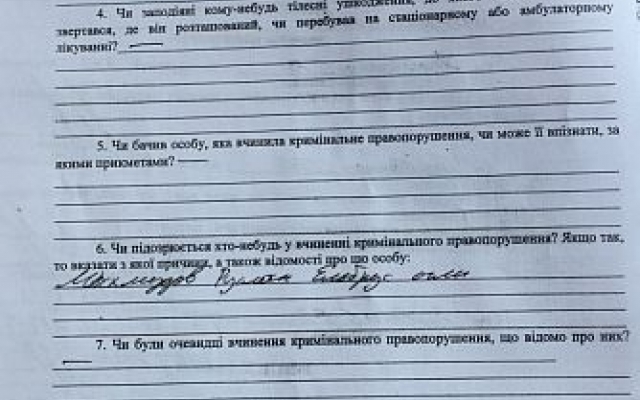 4. Чи заподіяні кому-небудь тілесні ушкодження, до
звертався, де він розташований, чи перебував на стаціонарному або амбулаторному
лікуванні? —
5. Чи бачив особу, яка вчинила кримінальне правопорушення, чи може її впізнати, за
якими прикметами? —
6. Чи підозрюється хто-небудь у вчиненні кримінального правопорушення? Якщо так,
то вказати з якої причини, а також відомості про цю особу:
Махмудов Ельбрус огли
7. Чи були очевидці вчинення кримінального правопорушення, що відомо про них?
—